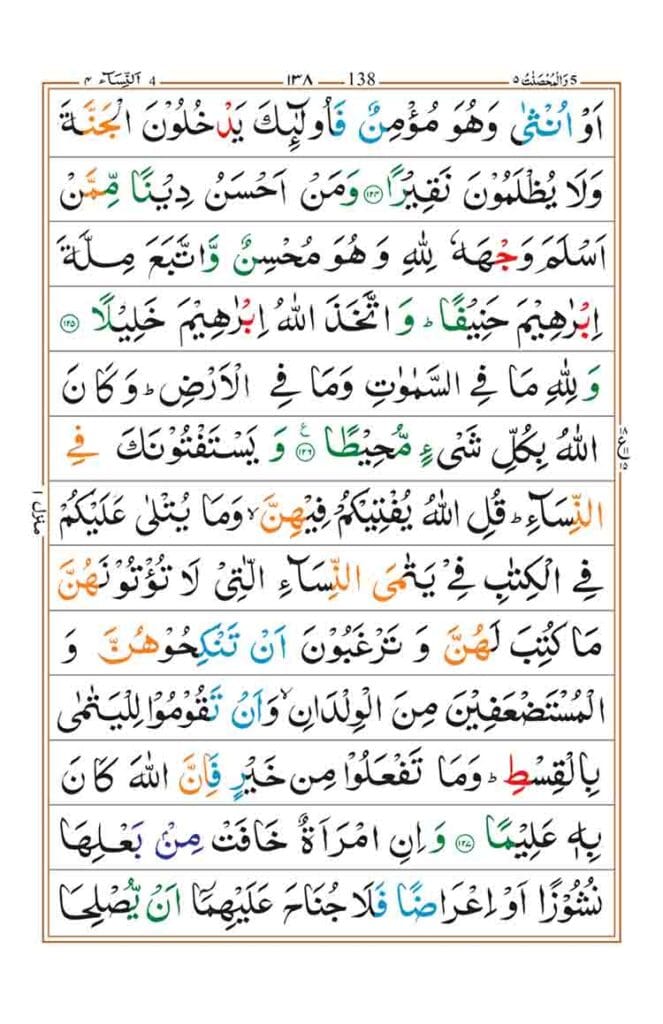 وَالْمُحْصَنٰتُ ٥ 5 138 ١٣٨ 4 اَلنِّسَآء ٤
اَوْ اُنْثٰى وَهُوَ مُؤْمِنٌ فَاُولٰٓئِكَ يَدْخُلُوْنَ الْجَنَّةَ
وَلَا يُظْلَمُوْنَ نَقِيْرًا ۝١٢٤ وَمَنْ اَحْسَنُ دِيْنًا مِّمَّنْ
اَسْلَمَ وَجْهَهٗ لِلّٰهِ وَهُوَ مُحْسِنٌ وَّاتَّبَعَ مِلَّةَ
اِبْرٰهِيْمَ حَنِيْفًا ؕ وَاتَّخَذَ اللّٰهُ اِبْرٰهِيْمَ خَلِيْلًا ۝١٢٥
وَلِلّٰهِ مَا فِى السَّمٰوٰتِ وَمَا فِى الْاَرْضِ ؕ وَكَانَ
اللّٰهُ بِكُلِّ شَىْءٍ مُّحِيْطًا ۝١٢٦ ع وَيَسْتَفْتُوْنَكَ فِى
١٨ ع ١١ ١٥
النِّسَآءِ ؕ قُلِ اللّٰهُ يُفْتِيْكُمْ فِيْهِنَّ ۙ وَمَا يُتْلٰى عَلَيْكُمْ
منزل ١
فِى الْكِتٰبِ فِىْ يَتٰمَى النِّسَآءِ الّٰتِىْ لَا تُؤْتُوْنَهُنَّ
مَا كُتِبَ لَهُنَّ وَتَرْغَبُوْنَ اَنْ تَنْكِحُوْهُنَّ وَ
الْمُسْتَضْعَفِيْنَ مِنَ الْوِلْدَانِ ۙ وَاَنْ تَقُوْمُوْا لِلْيَتٰمٰى
بِالْقِسْطِ ؕ وَمَا تَفْعَلُوْا مِنْ خَيْرٍ فَاِنَّ اللّٰهَ كَانَ
بِهٖ عَلِيْمًا ۝١٢٧ وَاِنِ امْرَاَةٌ خَافَتْ مِنْۢ بَعْلِهَا
نُشُوْزًا اَوْ اِعْرَاضًا فَلَا جُنَاحَ عَلَيْهِمَاۤ اَنْ يُّصْلِحَا